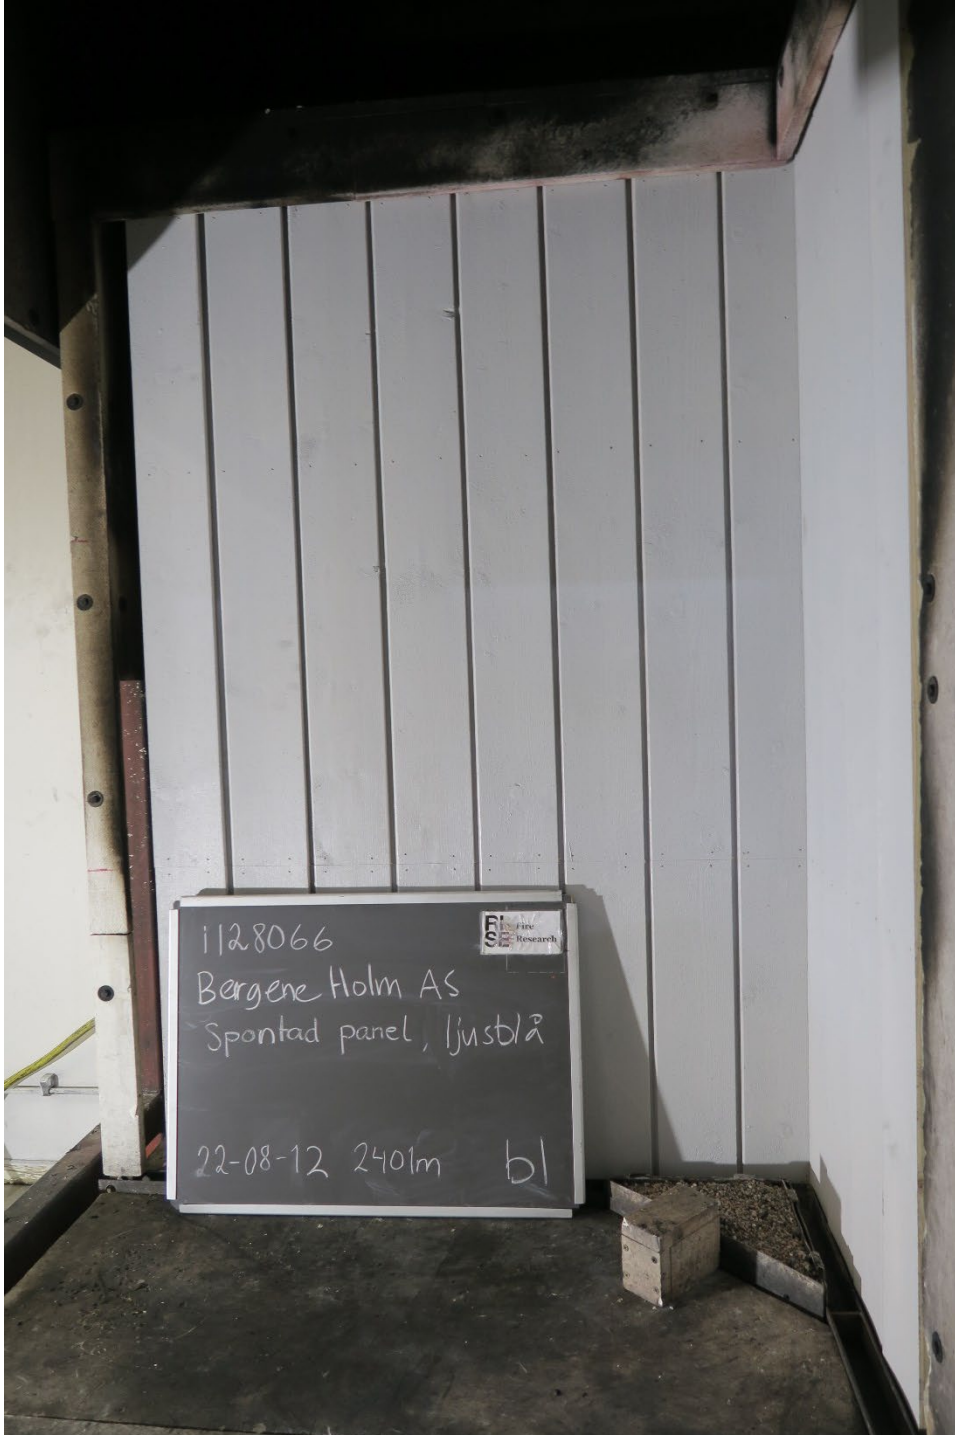 i128066
RI Fire
SE Research
Bergene Holm AS
Spontad panel, ljusblå
22-08-12 2401m b1